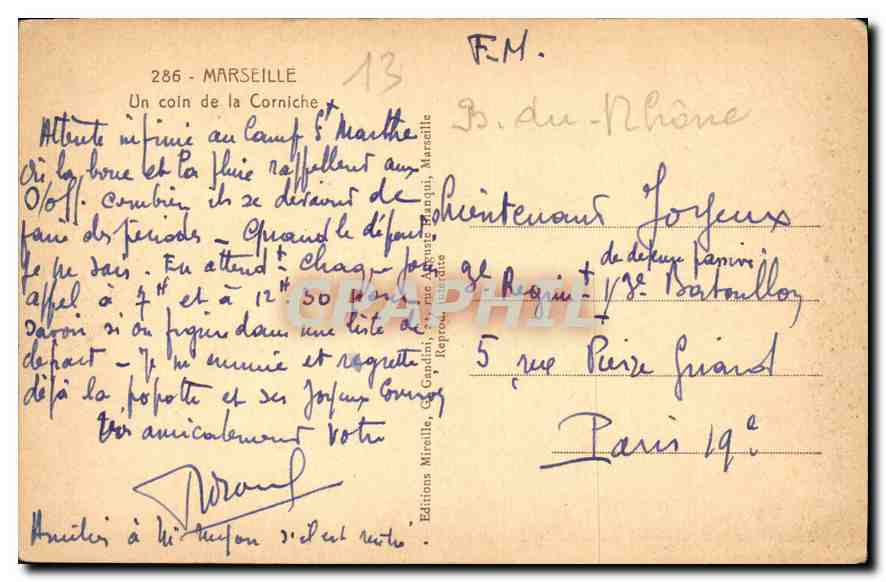 286 - MARSEILLE
Un coin de la Corniche
13
F.M.
B. du-Rhône
Attente infinie au Camp St Marthe
Où la boue et la pluie rappellent aux
O/off. combien ils se devront de
faire des périodes - Quand le départ?
Je ne sais. En attendt chaque jour
appel à 7H et à 12H30 pour
savoir si on figure dans une liste de
départ - Je m'ennuie et regrette
déjà la popotte et ses Joyeux
Très amicalement votre
Amitiés à s'il est rentré.
Editions Mireille, G. Gandini, rue Auguste Blanqui, Marseille
Reprod. interdite
Lieutenant Joyeux
de défense passive
3e Regimt 3e Bataillon
5 rue Pierre Girard
Paris 19e
CARPHIL